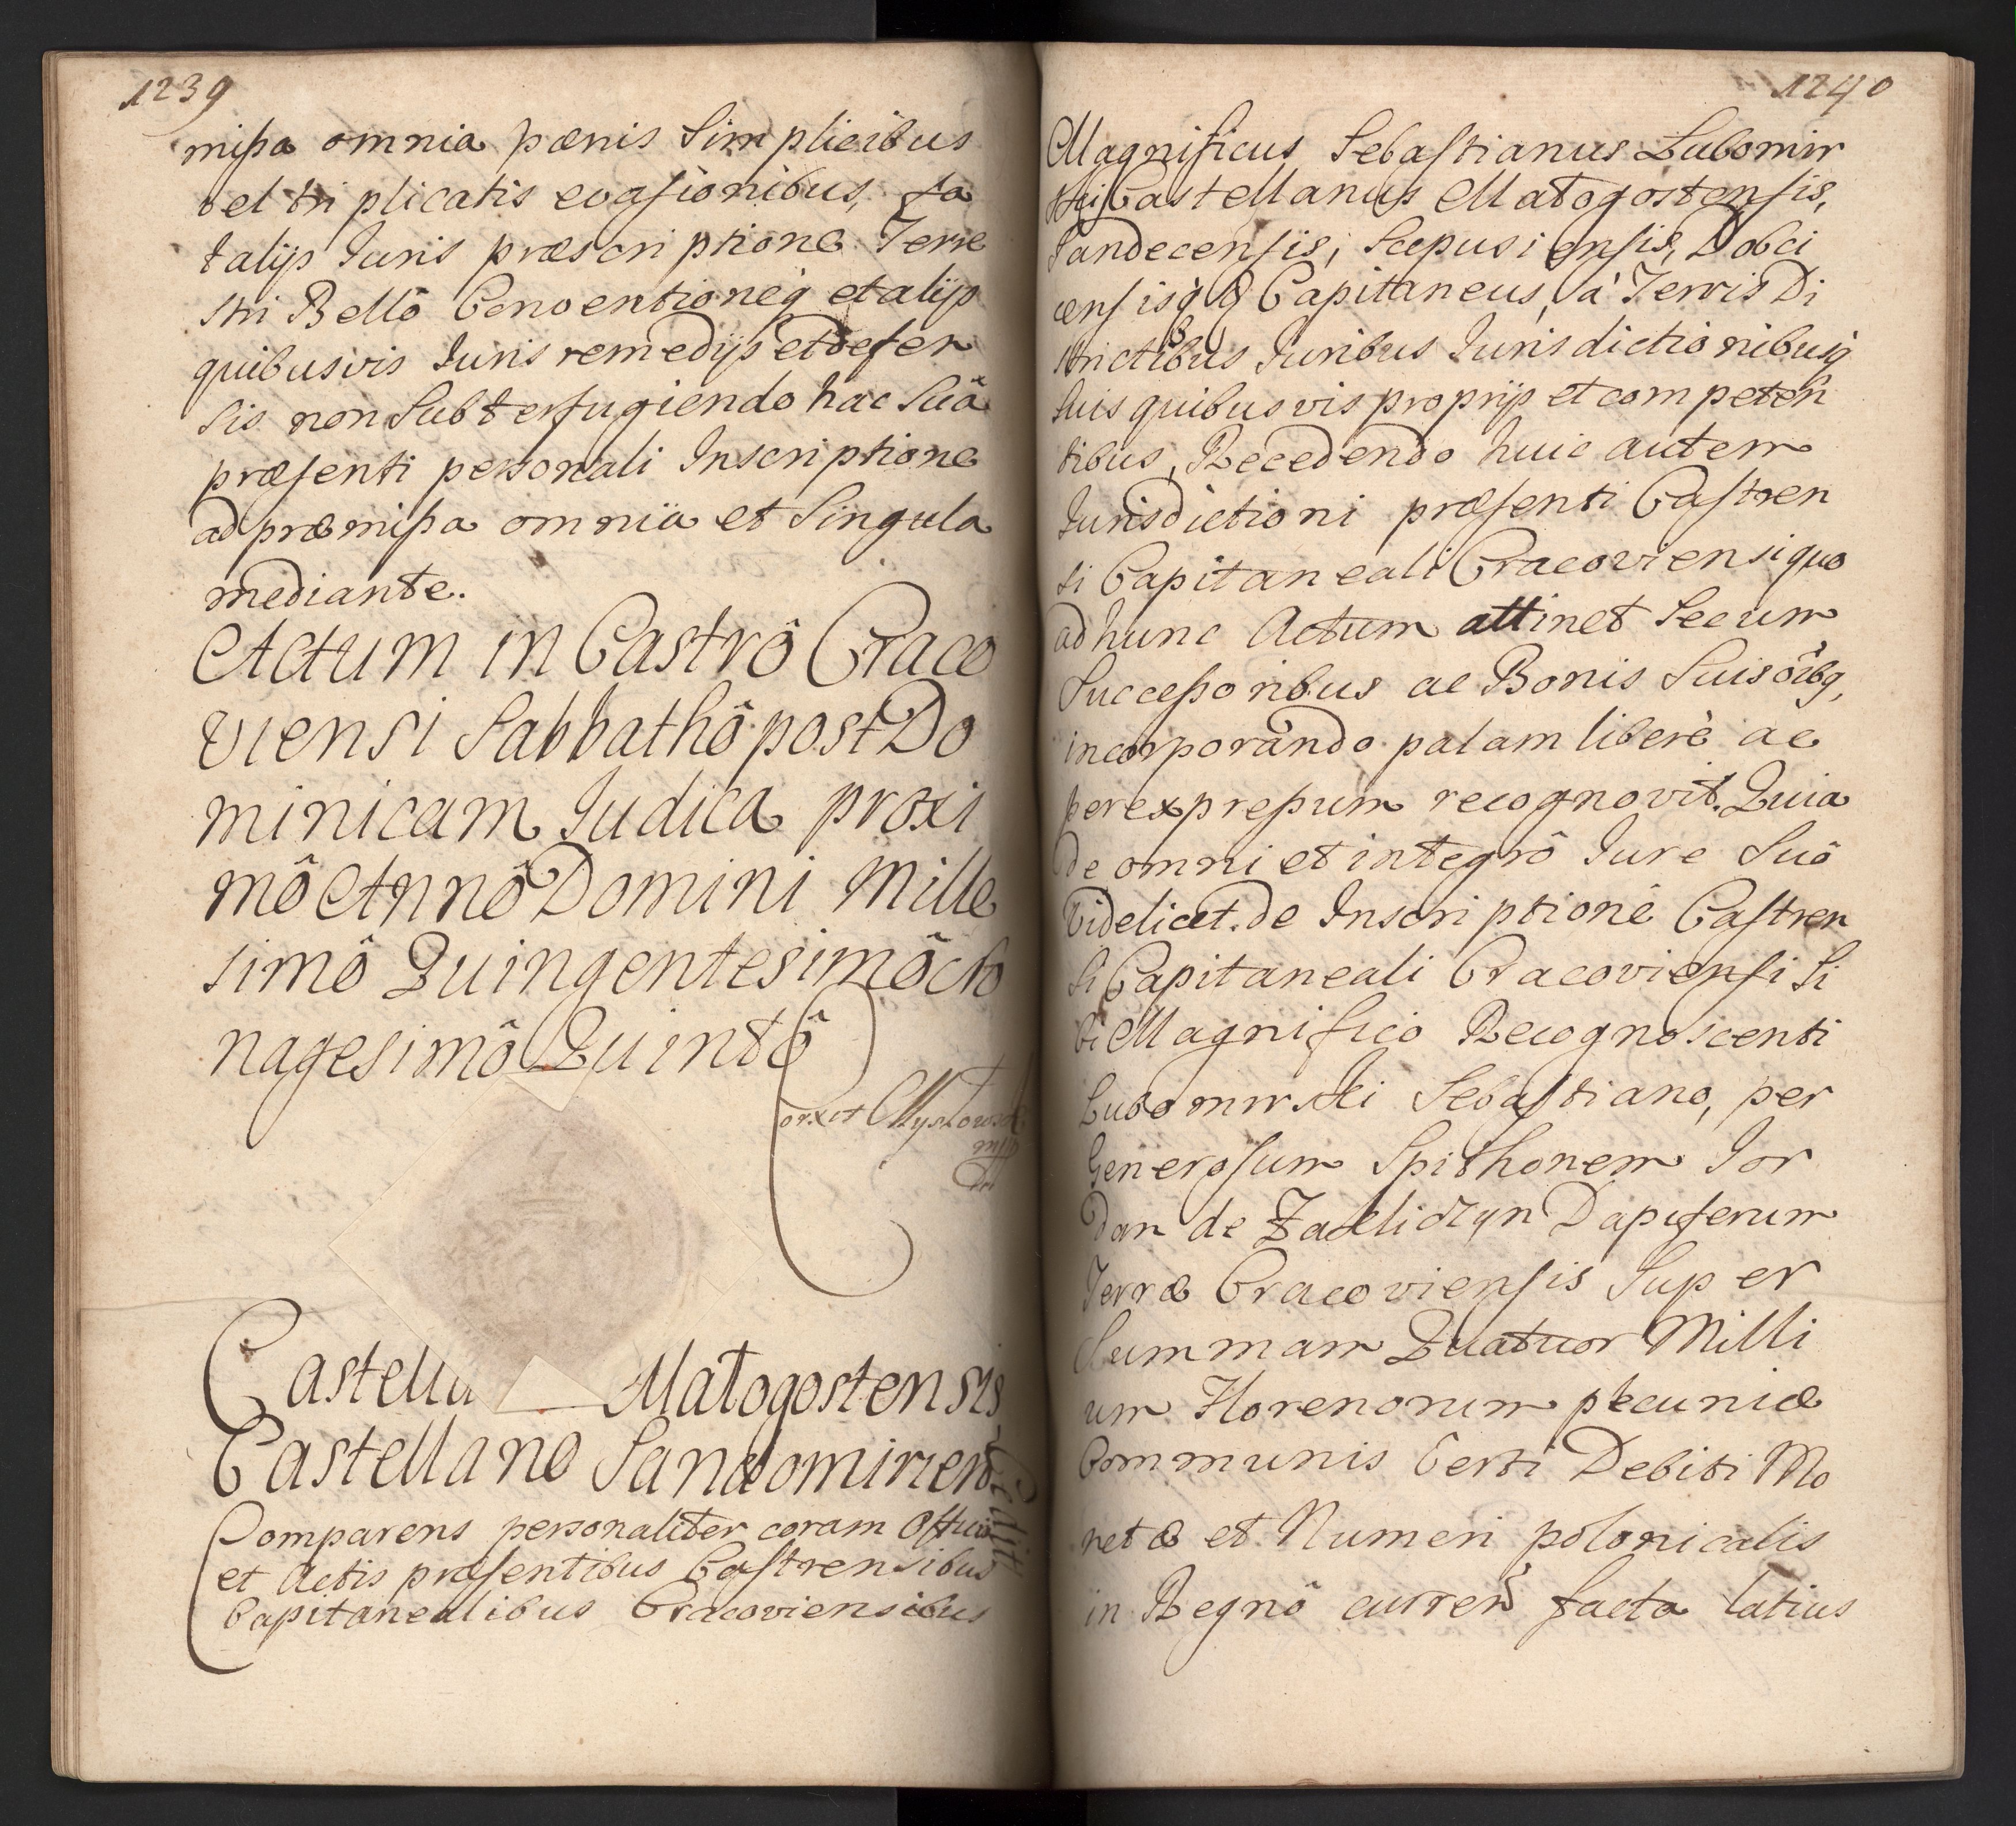 1239
mißa omnia pænis Simplicibus
vel triplicatis evasionibus, fa
talijs Juris præscriptione Terre
stri Bellô Conventioneq́ et alijs
quibusvis Juris remedijs et defen
sis non Subterfugiendo hac Suâ
præsenti personali Inscriptione
ad præmißa omnia et Singula
mediante.
Actum in Castrô Craco
viensi Sabbathô post Do
minicam Judica proxi
mô Annô Domini Mille
simô Quingentesimô
nagesimô Quintô
Castella Małogostensis
Castellano Sandomirien
Cedit
Comparens personaliter coram Officio
et Actis præsentibus Castrensibus
Capitanealibus Cracoviensibus
1240
Magnificus Sebastianus Lubomir
ski Castellanus Małogostensis,
Sandecensis, Scepusiensis, Dobci
censisq́ Capitaneus, â Terris Di
strictibus Juribus Jurisdictionibusq́
suis quibusvis proprijs et competen
tibus, Recedendo huic autem
Jurisdictioni præsenti Castren
si Capitaneali Cracoviensi quo
ad hunc Actum attinet Secum
Succeßoribus ac Bonis Suis oîbq,
incorporando palam liberè ac
per expreßum recognovit. Quia
de omni et integrô Jure Suô
Videlicet. de Inscriptione Castren
si Capitaneali Cracoviensi Si
bi Magnifico Recognoscenti
Lubomirski Sebastiano, per
Generosum Spithonem Jor
dan de Zakliczyn Dapiferum
Terræ Cracoviensis Super
Summam Quatuor Milli
um Florenorum pecuniæ
Communis Certi Debiti Mo
netæ et Numeri polonicalis
in Regnô curren facta latius